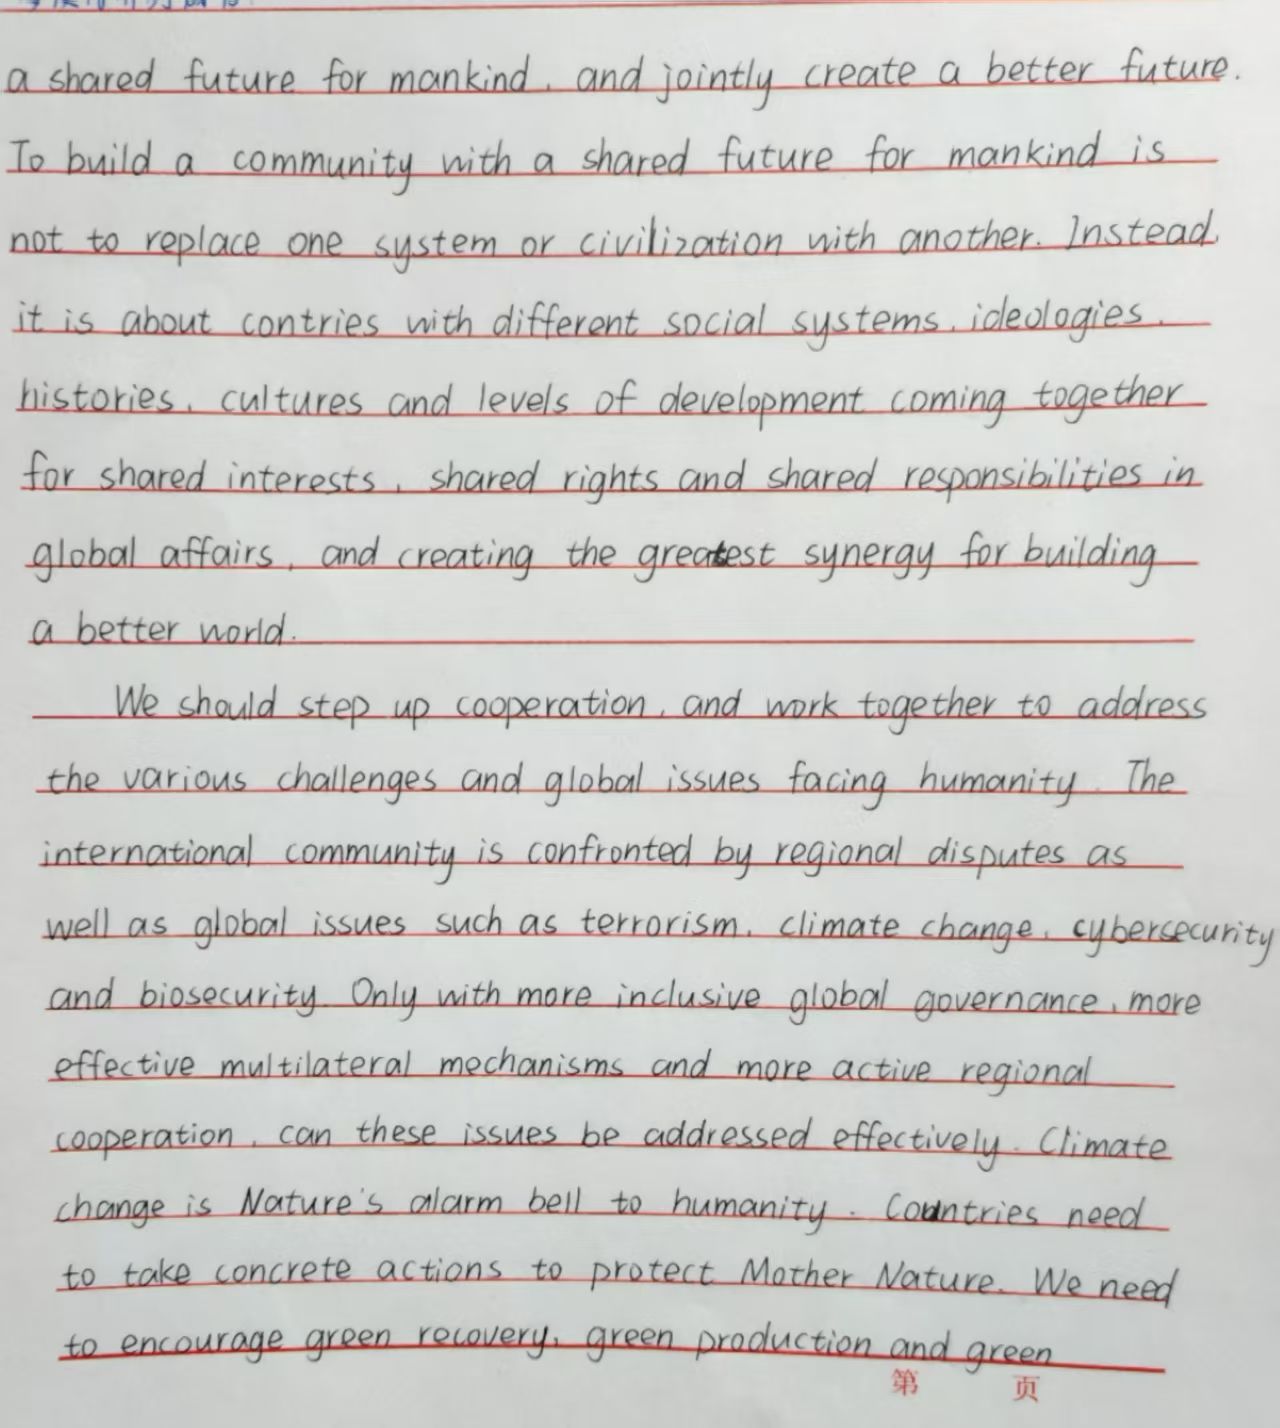 a shared future for mankind, and jointly create a better future.
To build a community with a shared future for mankind is
not to replace one system or civilization with another. Instead,
it is about contries with different social systems, ideologies,
histories, cultures and levels of development coming together
for shared interests, shared rights and shared responsibilities in
global affairs, and creating the greatest synergy for building
a better world.
We should step up cooperation, and work together to address
the various challenges and global issues facing humanity. The
international community is confronted by regional disputes as
well as global issues such as terrorism, climate change, cybersecurity
and biosecurity. Only with more inclusive global governance, more
effective multilateral mechanisms and more active regional
cooperation, can these issues be addressed effectively. Climate
change is Nature's alarm bell to humanity. Countries need
to take concrete actions to protect Mother Nature. We need
to encourage green recovery, green production and green
第 页